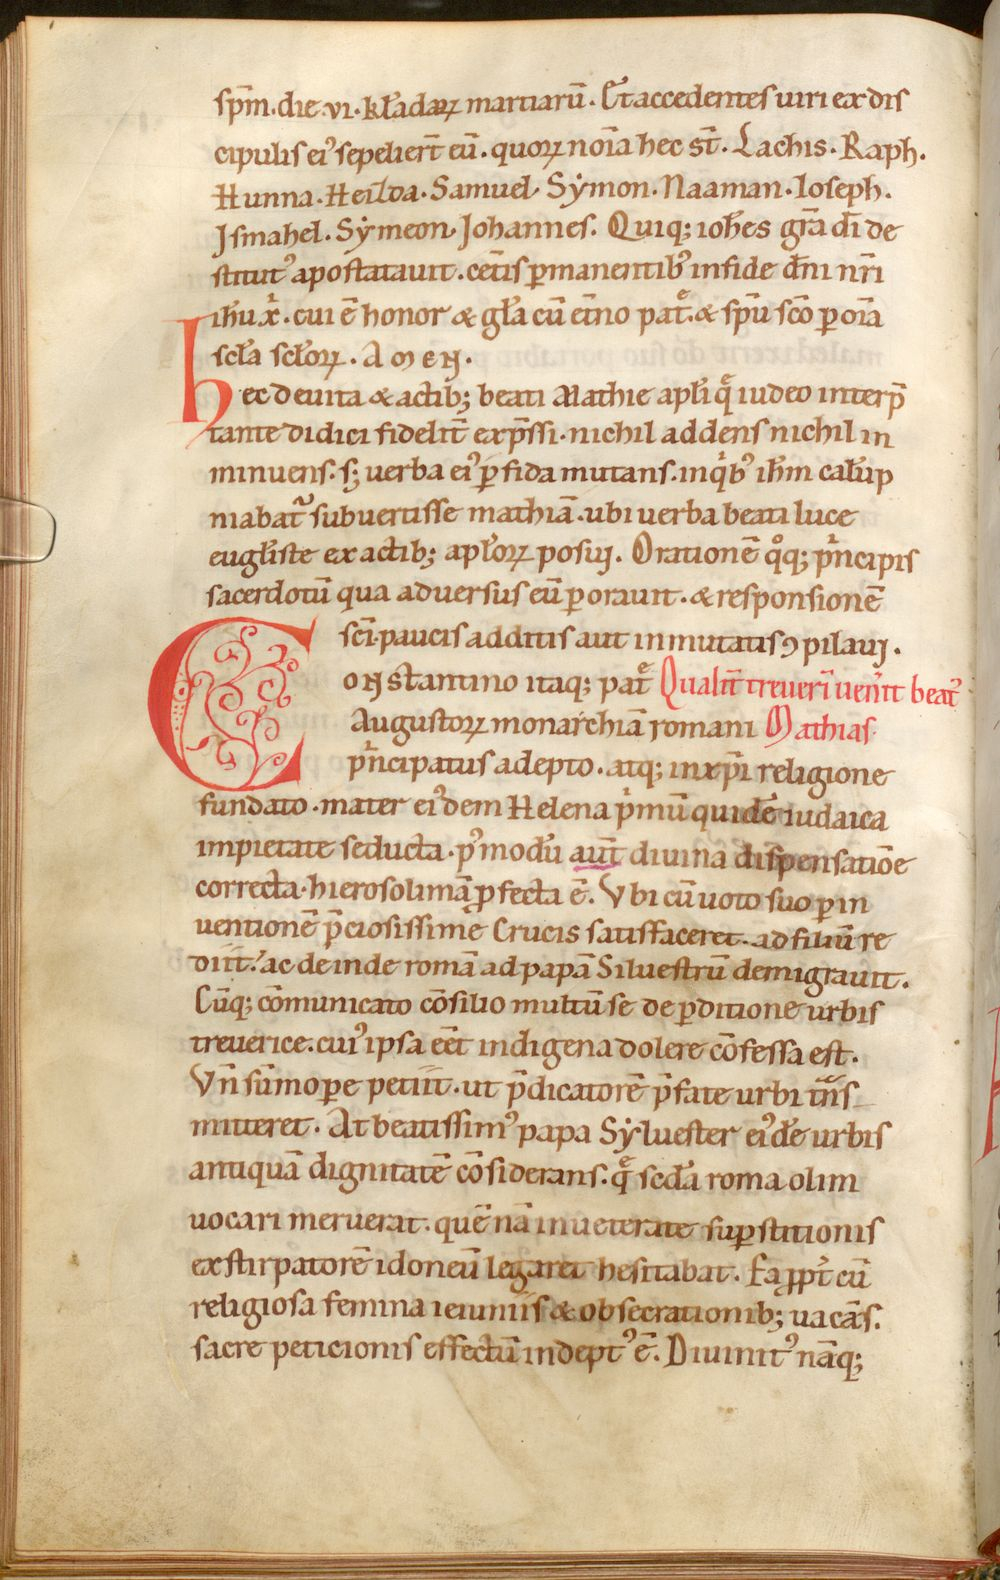 sp̄m. die .vi. kl̄adaꝝ martiarū. Et accedentes uiri ex dis
cipulis ei᾽ sepelier̄t eū. quoꝝ noīa hec st̄. Lachis. Raph.
Hunna. Heilda. Samuel. Symon. Naaman. Ioseph.
Ismahel. Symeon. Johannes. Quiq; ioh̄es gr̄a dī de
stitut᾽ apostatauit. cet̄is ꝑmanentib᾽ in fide dn̄i nr̄i
ih̄u xp̄i. cui ē honor & gl̄a cū et̄no pat̄. & sp̄u sc̄o ꝑ oīa
scl̄a scl̄oꝝ. Amen.
Hec de uita & actib; beati Mathie apl̄i q̄ iudeo interp̄
tante didici fidelit̄ exp̄ssi. nichil addens nichil in
minuens. s; uerba ei᾽ ꝑfida mutans. inq̇b᾽ ih̄m calūp
niabat᾽ subuertisse mathiā. ubi uerba beati luce
eugl̄iste ex actib; apl̄oꝝ posui. Orationē q°q; pͥncipis
sacerdotū qua aduersus eū ꝑorauit. & responsionē
sc̄i paucis additis aut inmutatis ꝯpilaui.
Constantino itaq; pat̄ Qualit̄ treueri uen̄it beat᾽
Augustoꝝ monarchiā romani Mathias.
pͥncipatus adepto. atq; in xp̄i religione
fundato. mater ei᾽dem Helena pͥmū quidē iudaica
impietate seducta. p᾽modū aut̄ diuina dispensatiōe
correcta. hierosolimā ꝓfecta ē. Vbi cū uoto suo ꝑ in
uentionē p̄ciosissime Crucis satisfaceret. ad filiū re
diit: ac deinde romā ad papā Siluestrū demigrauit.
Cūq; cōmunicato cōsilio multū se de ꝑditione urbis
treuerice. cui᾽ ipsa eēt indigena dolere cōfessa est.
Vn̄ sūmoꝑe petiit. ut p̄dicatorē p̄fate urbi tn̄s
mitteret. At beatissim᾽ papa Syluester ei᾽dē urbis
antiquā dignitatē cōsiderans. q̄ scd̄a roma olim
uocari meruerat. quē nā inueterate suꝑstitionis
exstirpatorē idoneū legaret hesitabat. Ea ꝓpt̄ cū
religiosa femina ieiuniis & obsecrationib; uacās.
sacre peticionis effectū indept᾽ ē. Diuinit᾽ nāq;